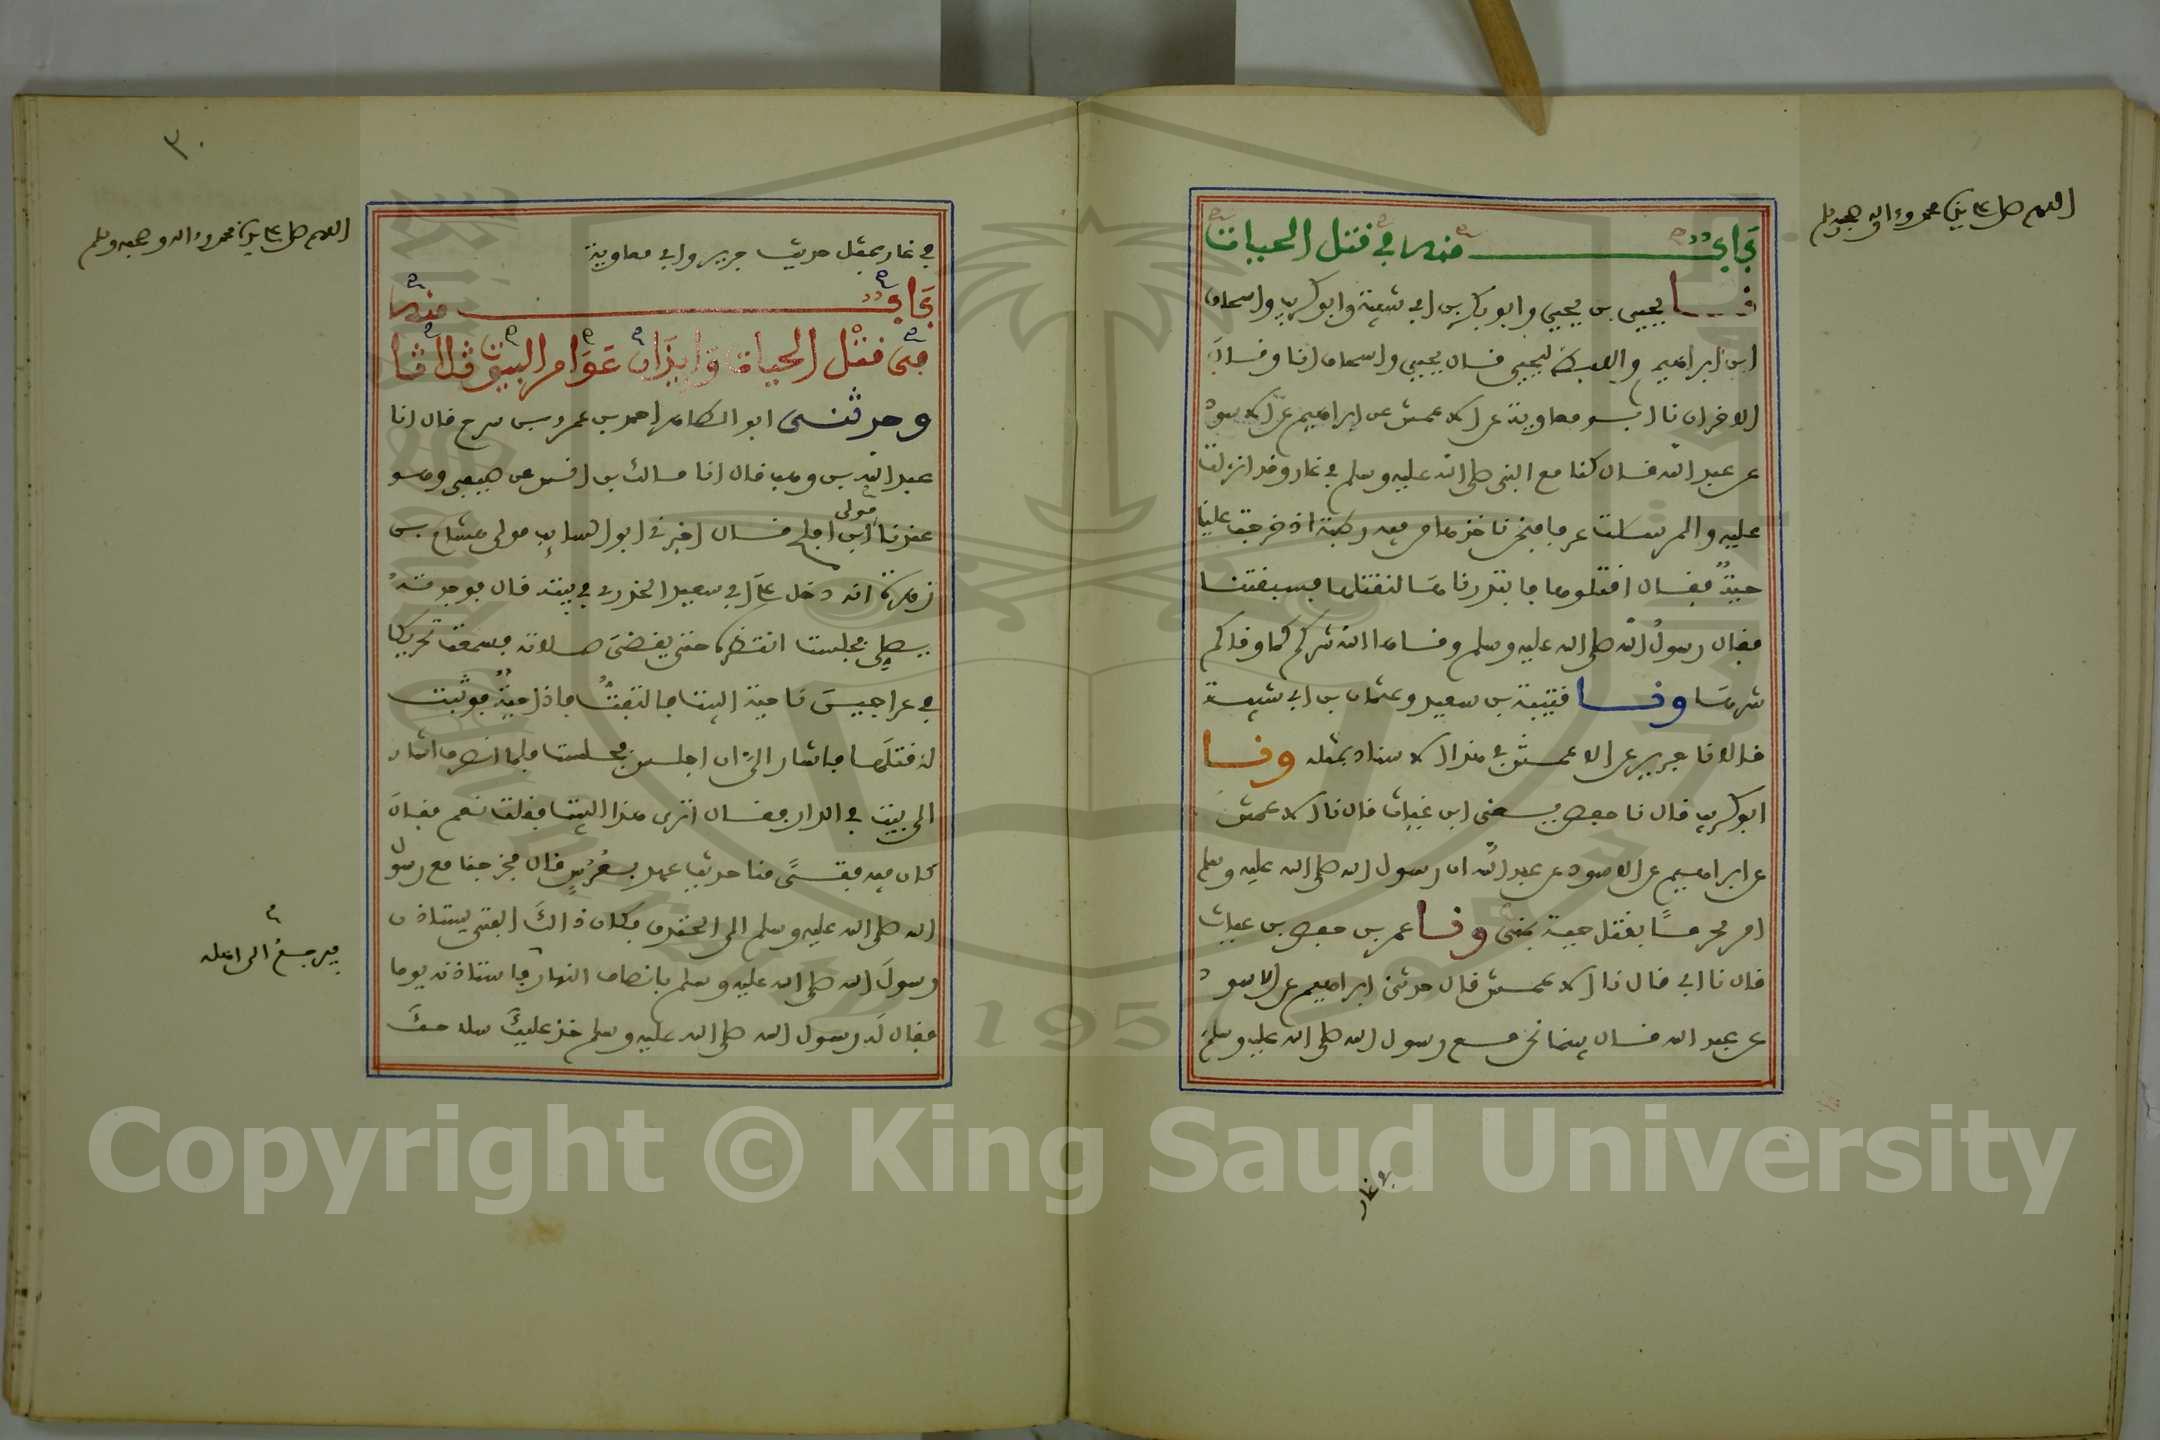 اللهم صل على سيدنا محمد وءاله وصحبه وسلم
باب منه في قتل الحيات
نا يحيى بن يحيى وابو بكر بن ابي شيبة وابو كريب واسحاق
ابن ابراهيم واللفظ ليحيى قال يحيى واسحاق انا وقال
الاخران نا ابو معاوية عن الاعمش عن ابراهيم عن الاسود
عن عبد الله قال كنا مع النبي صلى الله عليه وسلم في غار وقد انزلت
عليه والمرسلت عرفا فنحن ناخذها من فيه رطبة اذ خرجت علينا
حية فقال اقتلوها فابتدرناها لنقتلها فسبقتنا
فقال رسول الله صلى الله عليه وسلم وقاها الله شركم كما وقاكم
شرها ونا قتيبة بن سعيد وعثمان بن ابي شيبة
قالا نا جرير عن الاعمش في هذا الاسناد بمثله ونا
ابو كريب قال نا حفص يعني ابن غياث قال نا الاعمش
عن ابراهيم عن الاسود عن عبد الله ان رسول الله صلى الله عليه وسلم
امر محرما بقتل حية بمنى ونا عمر بن حفص بن غياث
قال نا ابي قال نا الاعمش قال حدثني ابراهيم عن الاسود
عن عبد الله قال بينما نحن مع رسول الله صلى الله عليه وسلم
في غار
٣٠
اللهم صل على سيدنا محمد وءاله وصحبه وسلم
في غار بمثل حديث جرير وابي معاوية
باب منه
في قتل الحيات وايذان عوامر البيوت ثلاثا
وحدثني ابو الطاهر احمد بن عمرو بن سرح قال انا
عبد الله بن وهب قال انا مالك بن انس عن صيفي وهو
عندنا مولى ابن افلح قال اخبرني ابو السايب مولى هشام بن
زهرة انه دخل على ابي سعيد الخدري في بيته قال فوجدته
يصلي فجلست انتظره حتى يقضي صلاته فسمعت تحريكا
في عراجين في ناحية البيت فالتفت فاذا حية فوثبت
لاقتلها فاشار الي ان اجلس فجلست فلما انصرف اشار
الى بيت في الدار فقال اترى هذا البيت فقلت نعم فقال
كان فيه فتى منا حديث عهد بعرس قال فخرجنا مع رسول
الله صلى الله عليه وسلم الى الخندق فكان ذالك الفتى يستاذن
رسول الله صلى الله عليه وسلم بانصاف النهار فاستاذنه يوما
فيرجع الى اهله
فقال له رسول الله صلى الله عليه وسلم خذ عليك سلاحك
1957
Copyright © King Saud University